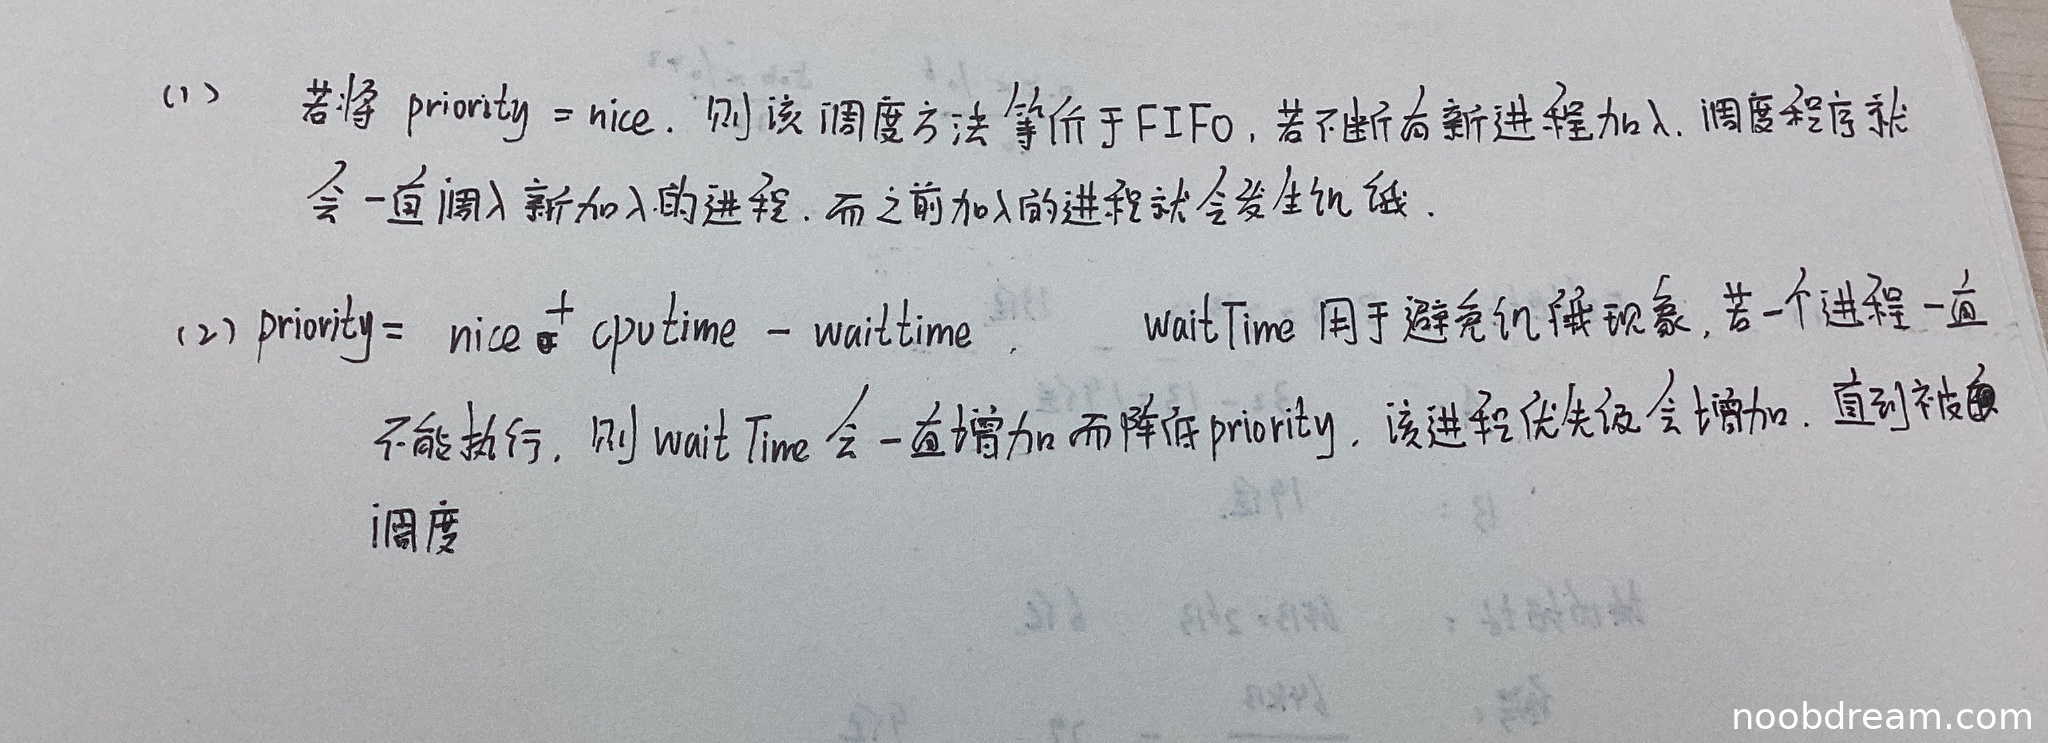 (1) 若将 priority = nice. 则该调度方法等价于FIFO, 若不断有新进程加入. 调度程序就
会一直调入新加入的进程. 而之前加入的进程就会发生饥饿.
(2) priority = nice + cputime - waittime, waitTime 用于避免饥饿现象, 若一个进程一直
不能执行. 则 waitTime 会一直增加而降低priority. 该进程优先级会增加. 直到被
调度
noobdream.com